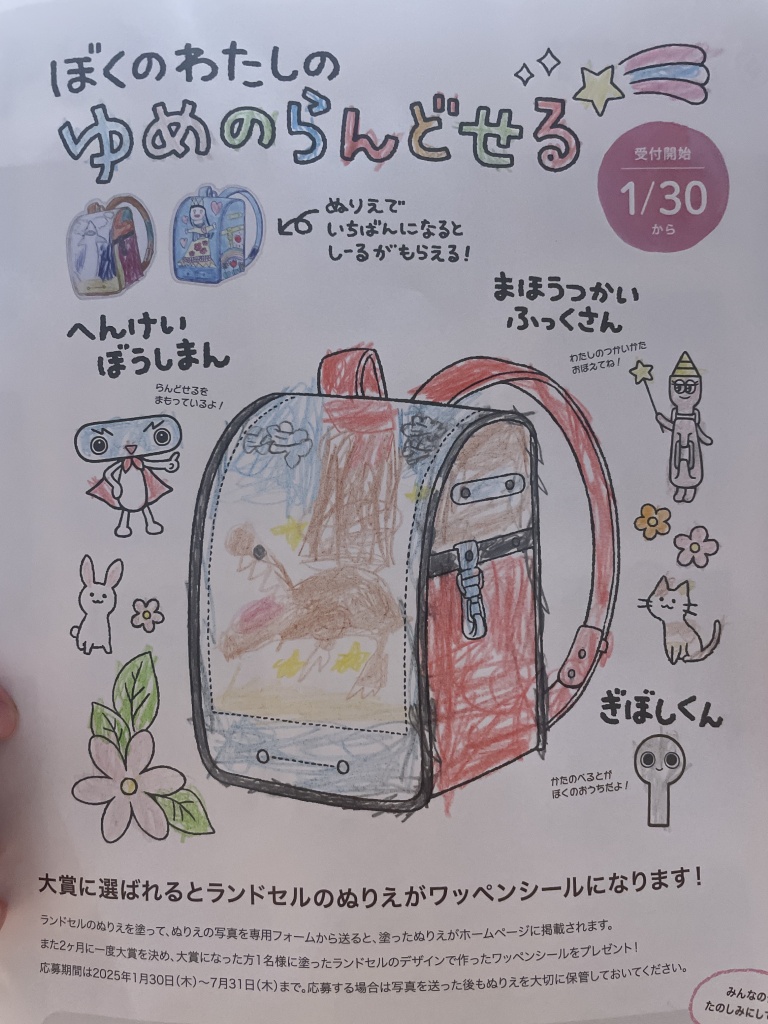 ぼくのわたしの
ゆめのらんどせる
受付開始
1/30
から
ぬりえで
いちばんになると
しーるがもらえる!
まほうつかい
ふっくさん
わたしのつかいかた
おぼえてね!
へんけい
ぼうしまん
らんどせるを
まもっているよ!
ぎぼしくん
かたのべるとが
ぼくのおうちだよ!
大賞に選ばれるとランドセルのぬりえがワッペンシールになります!
ランドセルのぬりえを塗って、ぬりえの写真を専用フォームから送ると、塗ったぬりえがホームページに掲載されます。
また2ヶ月に一度大賞を決め、大賞になった方1名様に塗ったランドセルのデザインで作ったワッペンシールをプレゼント!
応募期間は2025年1月30日(木)〜7月31日(木)まで。応募する場合は写真を送った後もぬりえを大切に保管しておいてください。
みんなの
たのしみにして